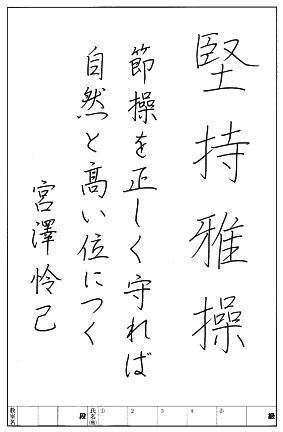 堅持雅操
節操を正しく守れば
自然と高い位につく
宮澤怜己
級 ⑤ 4 3 2 ① 氏名(剛) 段 教室名